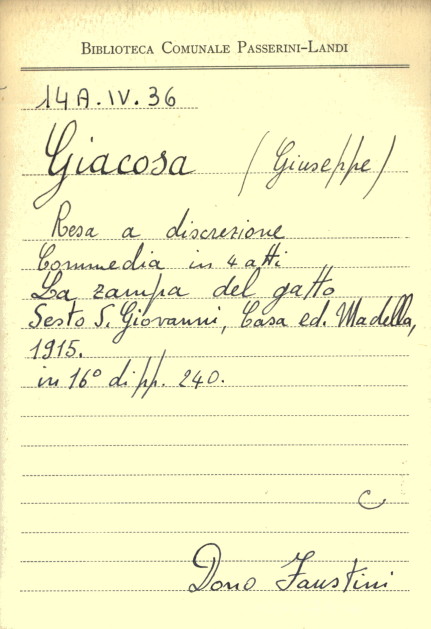 BIBLIOTECA COMUNALE PASSERINI-LANDI
14A.IV.36
Giacosa (Giuseppe)
Resa a discrezione
Commedia in 4 atti
La zampa del gatto
Sesto S. Giovanni, Casa ed. Madella,
1915.
in 16° di pp. 240.
C
Dono Faustini